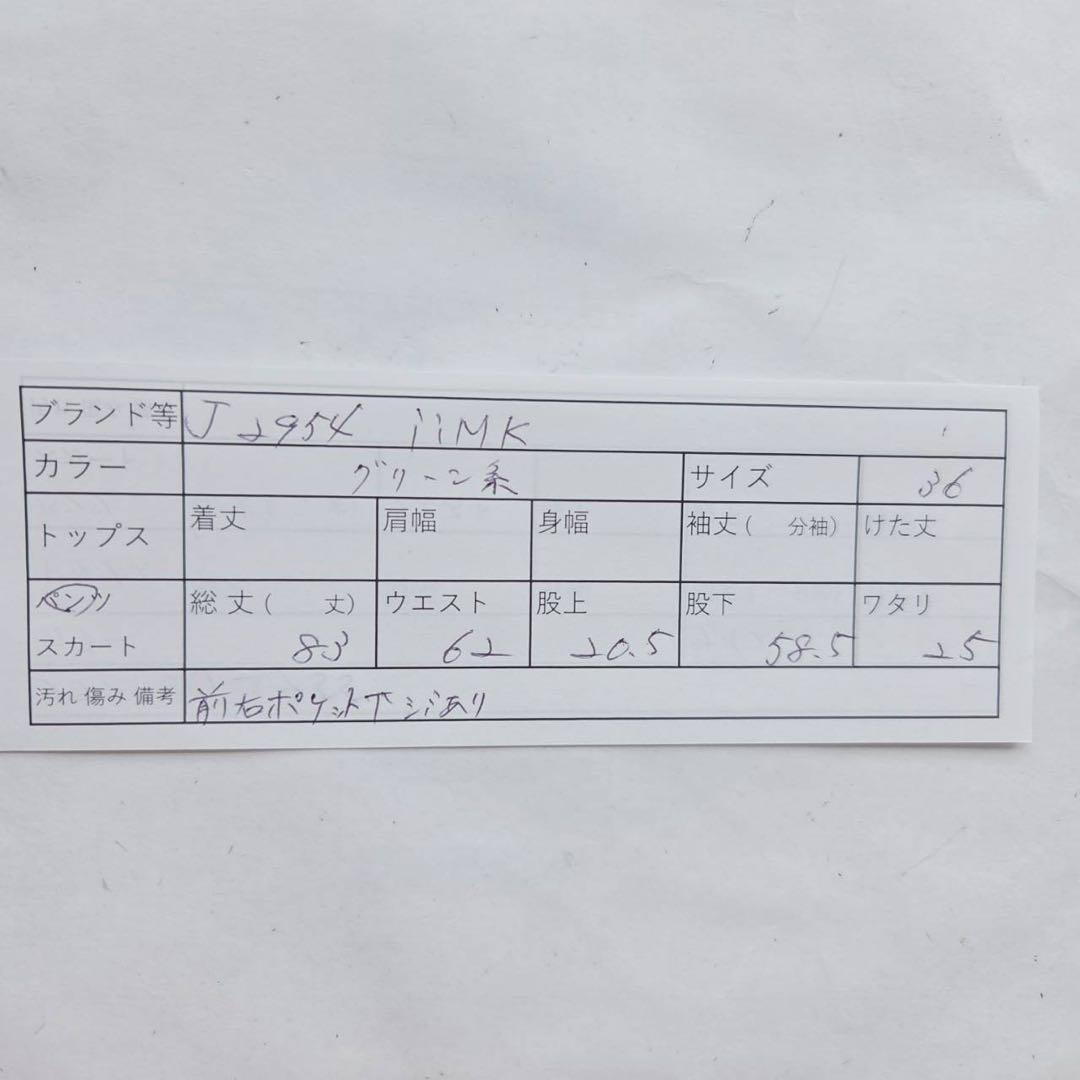 ブランド等 J2954 iiMK
カラー グリーン系 サイズ 36
トップス 着丈 肩幅 身幅 袖丈( 分袖) けた丈
パンツ 総丈( 丈) ウエスト 股上 股下 ワタリ
スカート 83 62 20.5 58.5 25
汚れ 傷み 備考 前右ポケット下シミあり